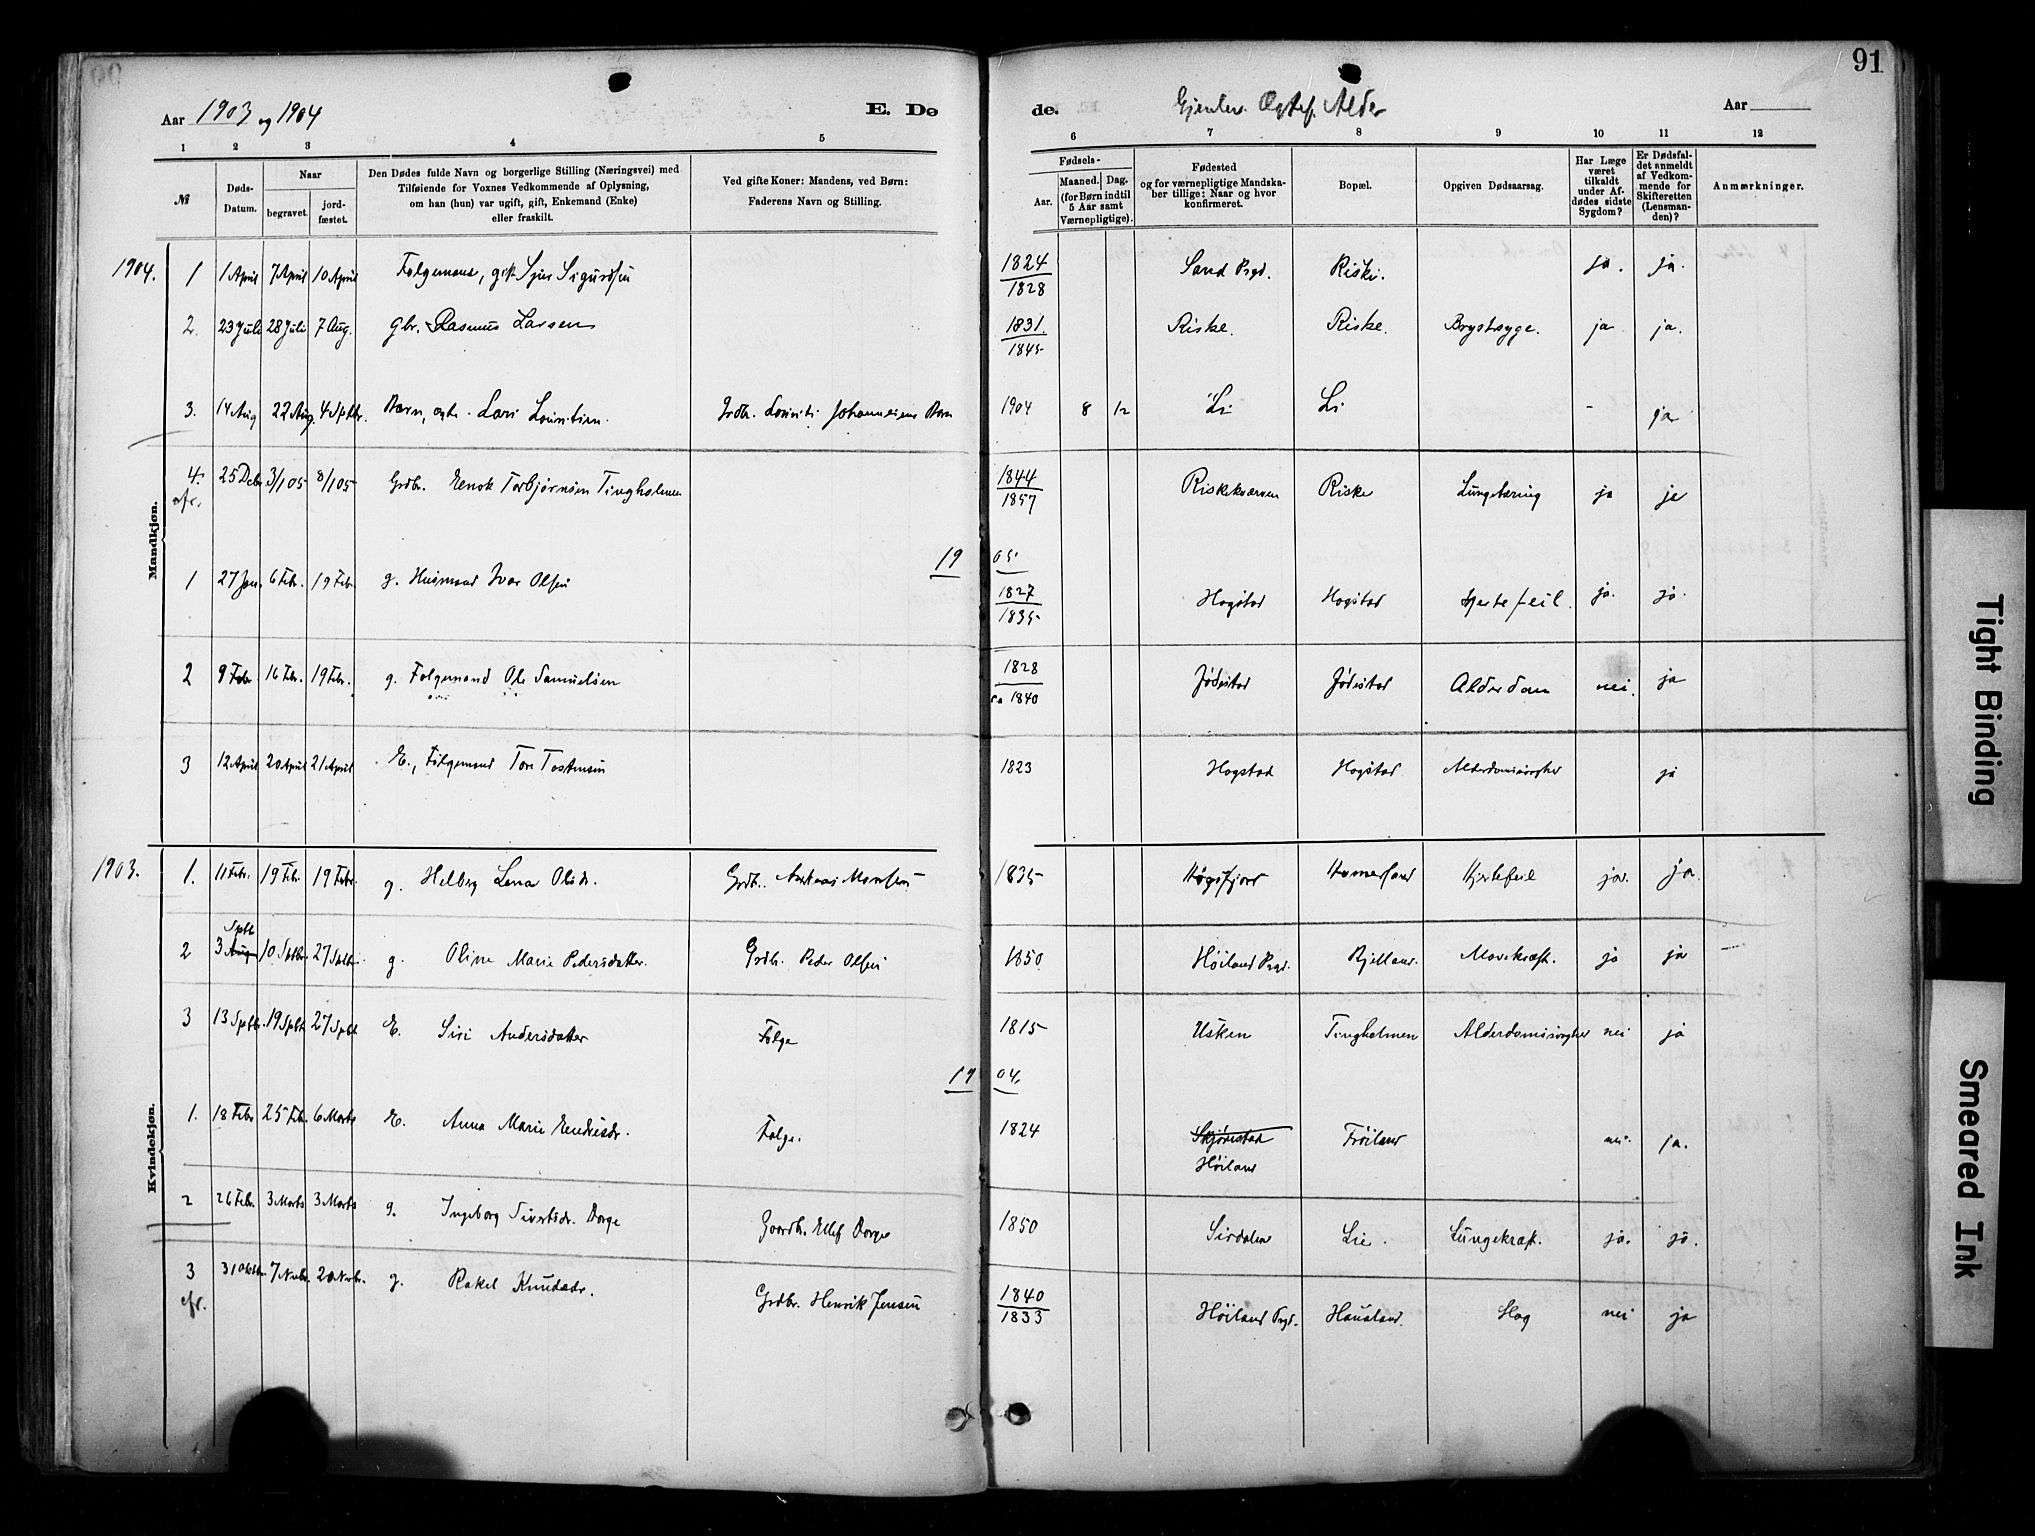 91
Aar 1903 og 1904 E. Dø
de. Aar
1 2 3 4 5 6 7 8 9 10 11 12
№
Døds-Datum.
Naar
begravet.
jord-fæstet.
Den Dødes fulde Navn og borgerlige Stilling (Næringsvei) med
Tilføiende for Voxnes Vedkommende af Oplysning,
om han (hun) var ugift, gift, Enkemand (Enke)
eller fraskilt.
Ved gifte Koner: Mandens, ved Børn:
Faderens Navn og Stilling.
Fødsels-
Aar.
Maaned. Dag.
(for Børn indtil
5 Aar samt
Værnepligtige).
Fødested
og for værnepligtige Mandska-
ber tillige: Naar og hvor
konfirmeret.
Bopæl.
Opgiven Dødsaarsag.
Har Læge
været
tilkaldt
under Af-
dødes sidste
Sygdom?
Er Dødsfal-
det anmeldt
af Vedkom-
mende for
Skifteretten
(Lensman-
den)?
Anmærkninger.
Mandkjøn.
1904. 1 1 April 7 April 10 April Sigurdsen 1824 1828 Sand Riske. ja. ja.
2. 23 Juli 28 Juli 7 Aug. gbr. Rasmus Larsen 1831. 1845 Riske. Riske. Brystsyge. ja ja.
3. 14 Aug 22 Aug. 4 Septbr. Barn, Lars Grdb. Barn 1904 8 12 Li Li - ja
4. 25 Decbr 3/1 05 8/1 05 Grdb. Enok Torbjørnsen Tingholmen 1844 1857 Riske Lungetæring ja ja
1905
1 27 Jan. 6 Febr. 19 Febr. g. Husmand Ivar Olsen 1827 1835 Hogstad Hogstad Hjertefeil. ja. ja.
2 9 Febr 16 Febr. 19 Febr. g. Følgemand Ole Samuelsen 1828 1840 Jødestad Jødestad Alderdom nei. ja
3 12 April 20 April 21 April E., Følgemand Tore Tostensen 1823 Hogstad Hogstad ja
Kvindekjøn.
1903. 1. 11 Febr. 19 Febr 19 Febr. g. Helberg Lena Olsdr. Grdb. Andreas 1835 Høgsfjord Hjertefeil ja. ja.
2 3 Aug Sptb 10 Sptbr. 27 Sptbr. g. Oline Marie Pedersdatter. Grdb. Peder Olsen 1850 Høiland Prgd. Bjelland. Mavekræft. ja ja
3 13 Sptbr. 19 Sptbr. 27 Sptbr E. Siri Andersdatter Følge 1815 Usken Tingholmen nei ja
1904.
1. 18 Febr 25 Febr. 6 Marts E. Anna Marie Endresdr. Følge. 1824 Skjørestad Høiland Frøiland nei. ja.
2 26 Febr. 3 Marts 3 Marts g. Ingeborg Sivertsdr. Borge Gaardb. Ellef Borge 1850 Sirdalen Lie. Lungekræft. ja. ja.
3 31 Oktbr. 7 Novbr. 20 Novbr. g. Rakel Knudsdr. Grdbr. Henrik Jensen 1840 1833 Høiland Prgd. Haualand. nei ja
Tight Binding
Smeared Ink